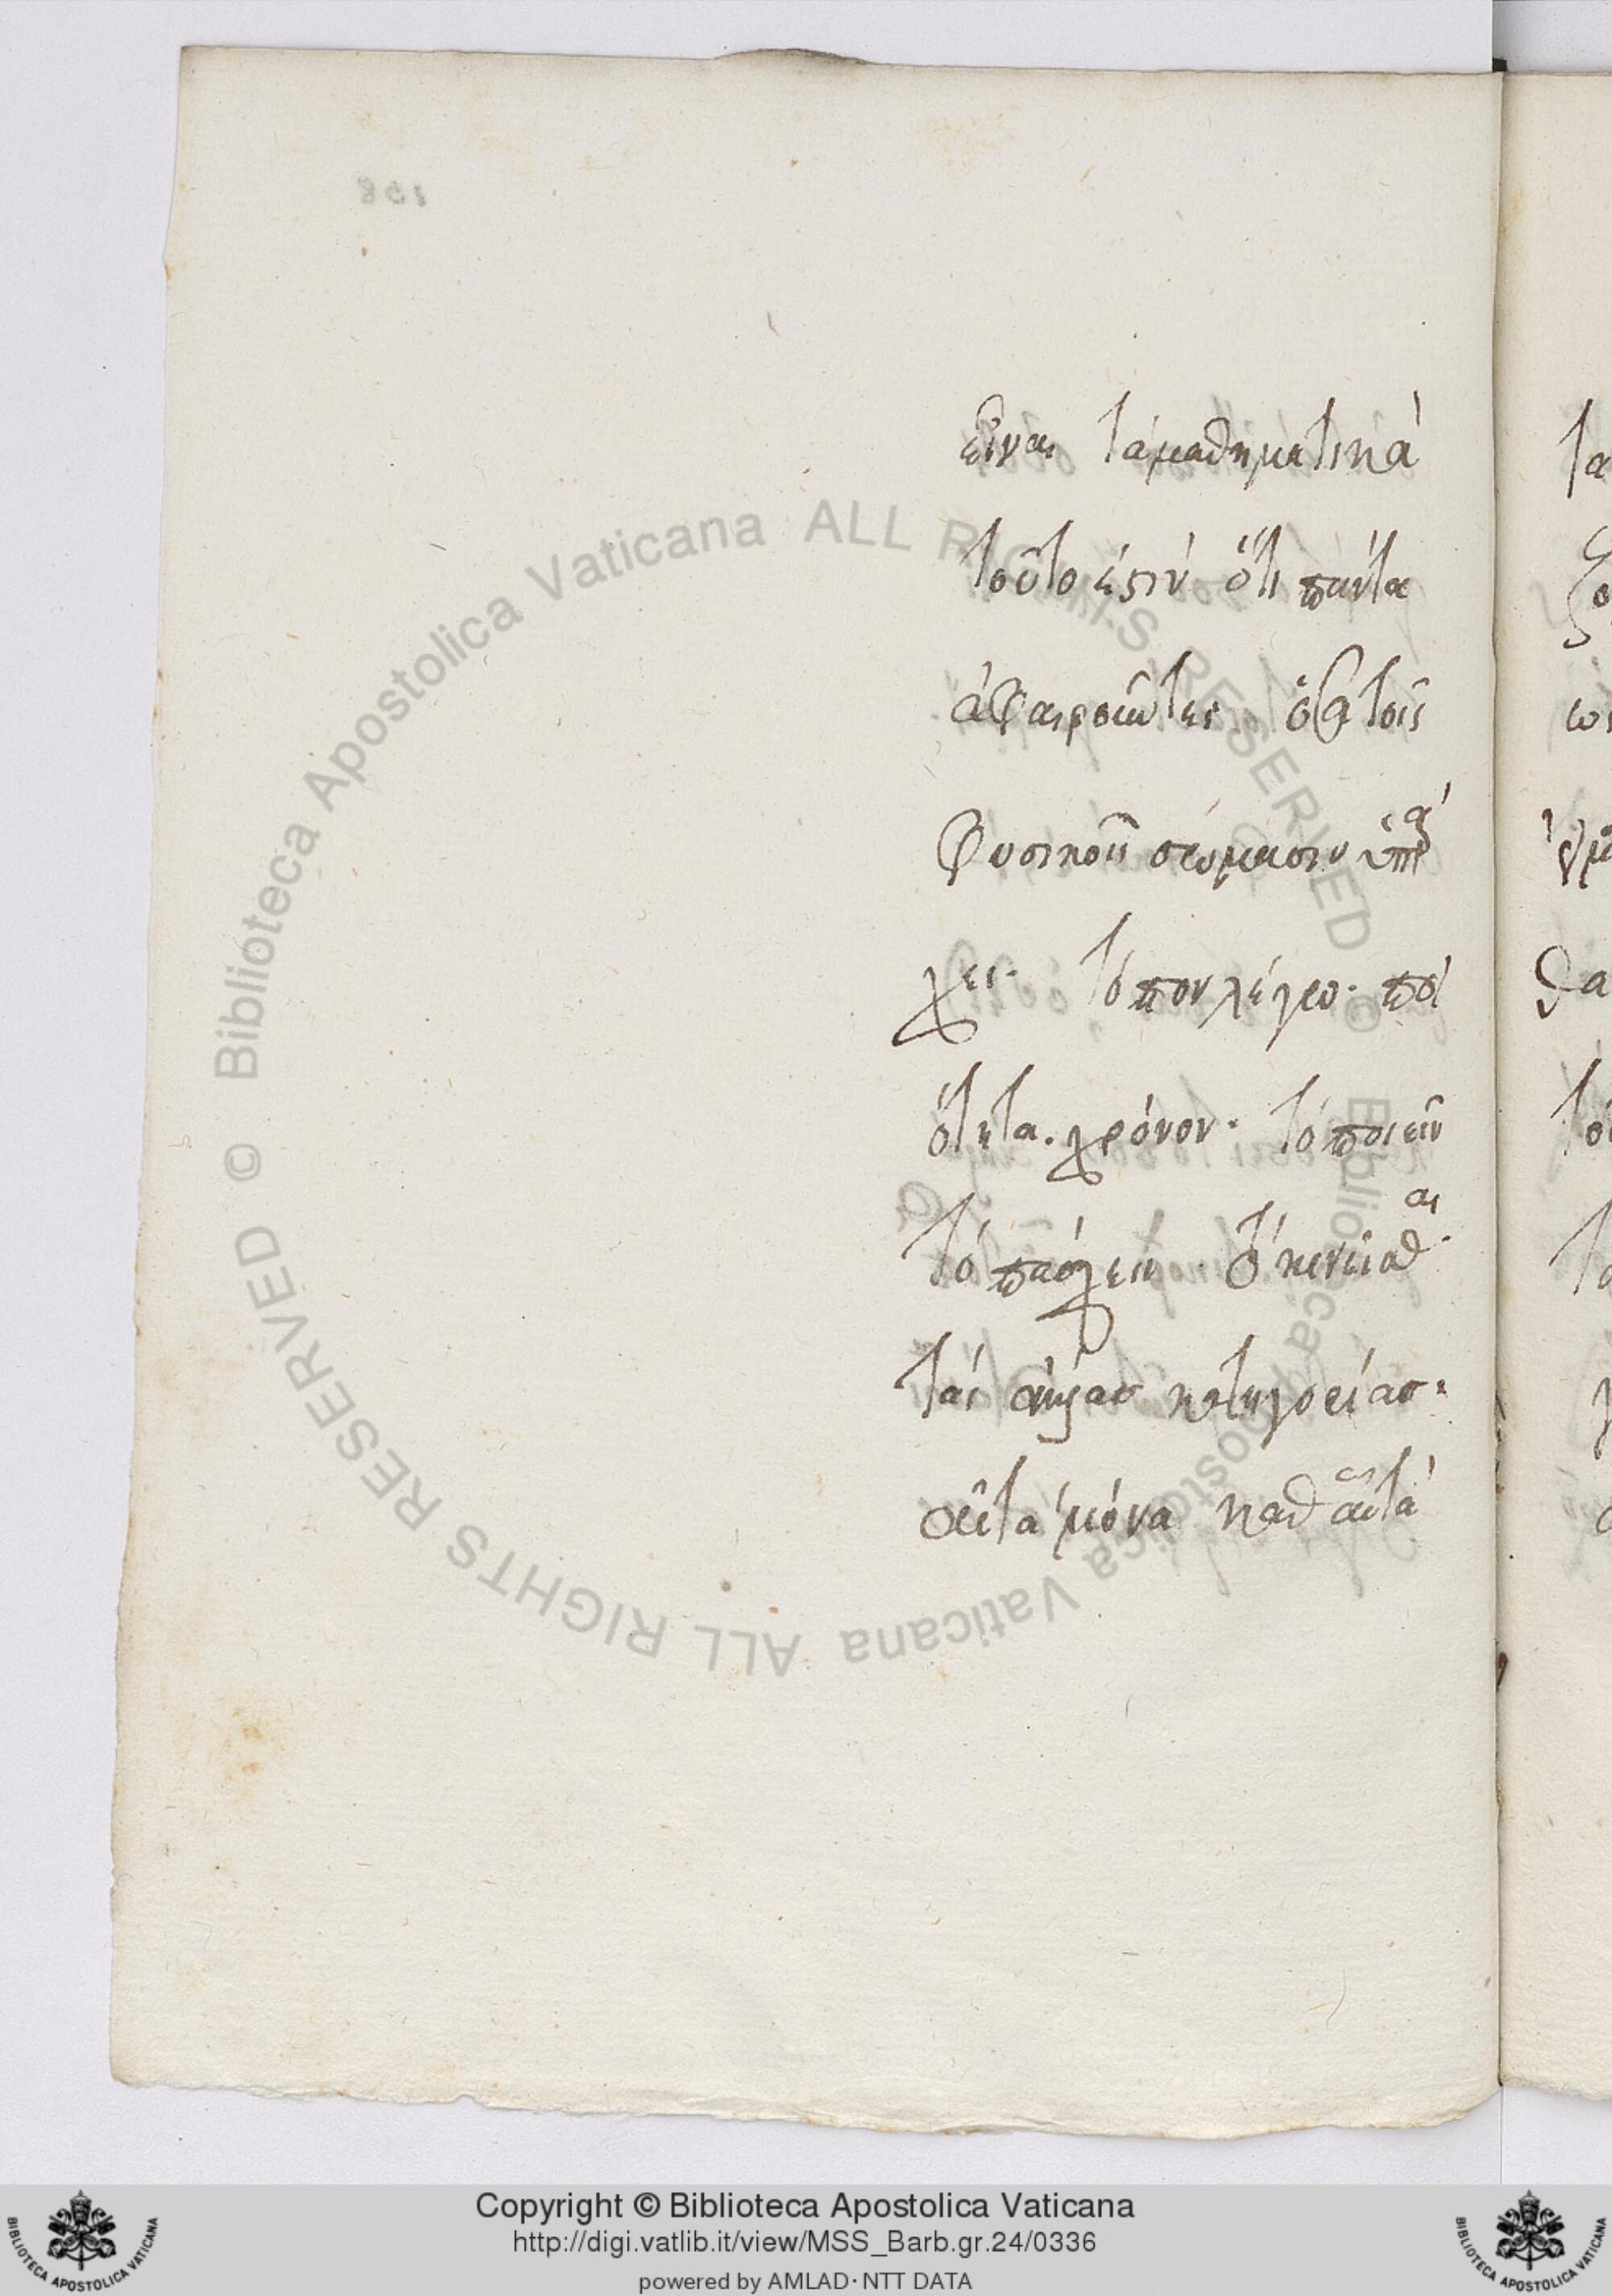 εἶναι τὰ μαθηματικὰ
τοῦτο ἐστὶν ὅτι πάντα
ἀφαιροῦντες ὅσα τοῖς
φυσικοῖς σώμασιν ὑπάρ
χει. τόπον λέγω. ποι
ότητα. χρόνον. τὸ ποιεῖν
τὸ πάσχειν. τὸ κινεῖσθαι.
τὰς ἄλλας κατηγορίας.
αὐτὰ μόνα καθ αὑτὰ
Biblioteca Apostolica Vaticana ALL RIGHTS RESERVED ©
Biblioteca Apostolica Vaticana ALL RIGHTS RESERVED ©
Copyright © Biblioteca Apostolica Vaticana
http://digi.vatlib.it/view/MSS_Barb.gr.24/0336
powered by AMLAD·NTT DATA
BIBLIOTECA APOSTOLICA VATICANA
BIBLIOTECA APOSTOLICA VATICANA